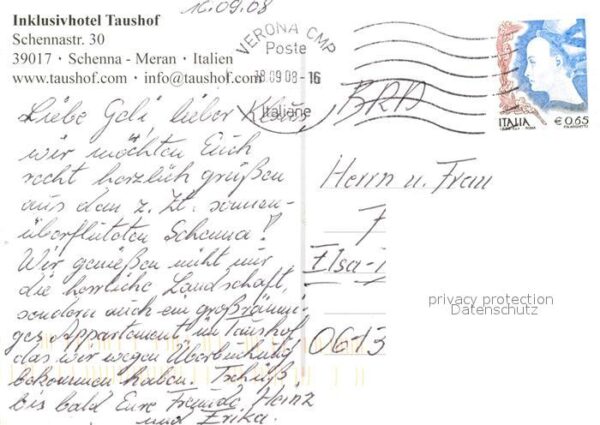 16.09.08
Inklusivhotel Taushof
Schennastr. 30
39017 · Schenna - Meran · Italien
www.taushof.com · info@taushof.com
VERONA CMP
Poste
18 09 08 - 16
Italiane
ITALIA
€ 0,65
Liebe Geli, lieber Klaus
wir möchten Euch
recht herzlich grüßen
aus dem z. Zt. sonnen-
überfluteten Schenna!
Wir genießen nicht nur
die herrliche Landschaft,
sondern auch ein großräumi-
ges Appartement im Taushof
das wir wegen Überbuchung
bekommen haben. Tschüß!
Bis bald Eure Freunde Heinz
und Erika.
BRD
Herrn u. Frau
F
Elsa-
0613
privacy protection
Datenschutz